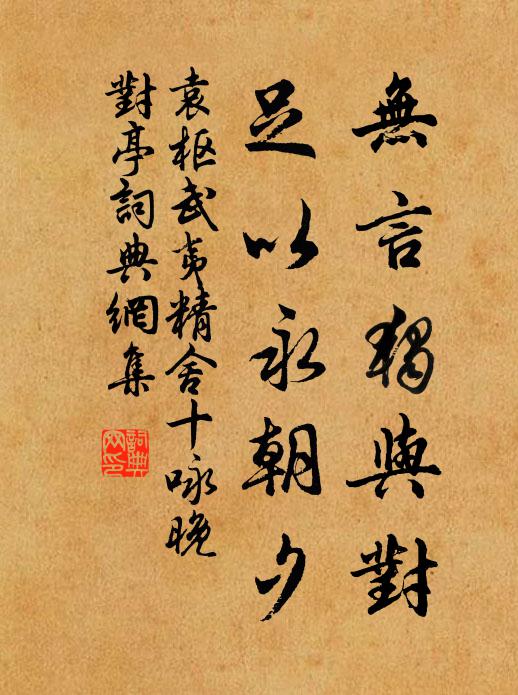 無言獨與對
足以永朝夕
袁枢武夷精舍十咏晚
對亭詞典網集
詞典網印